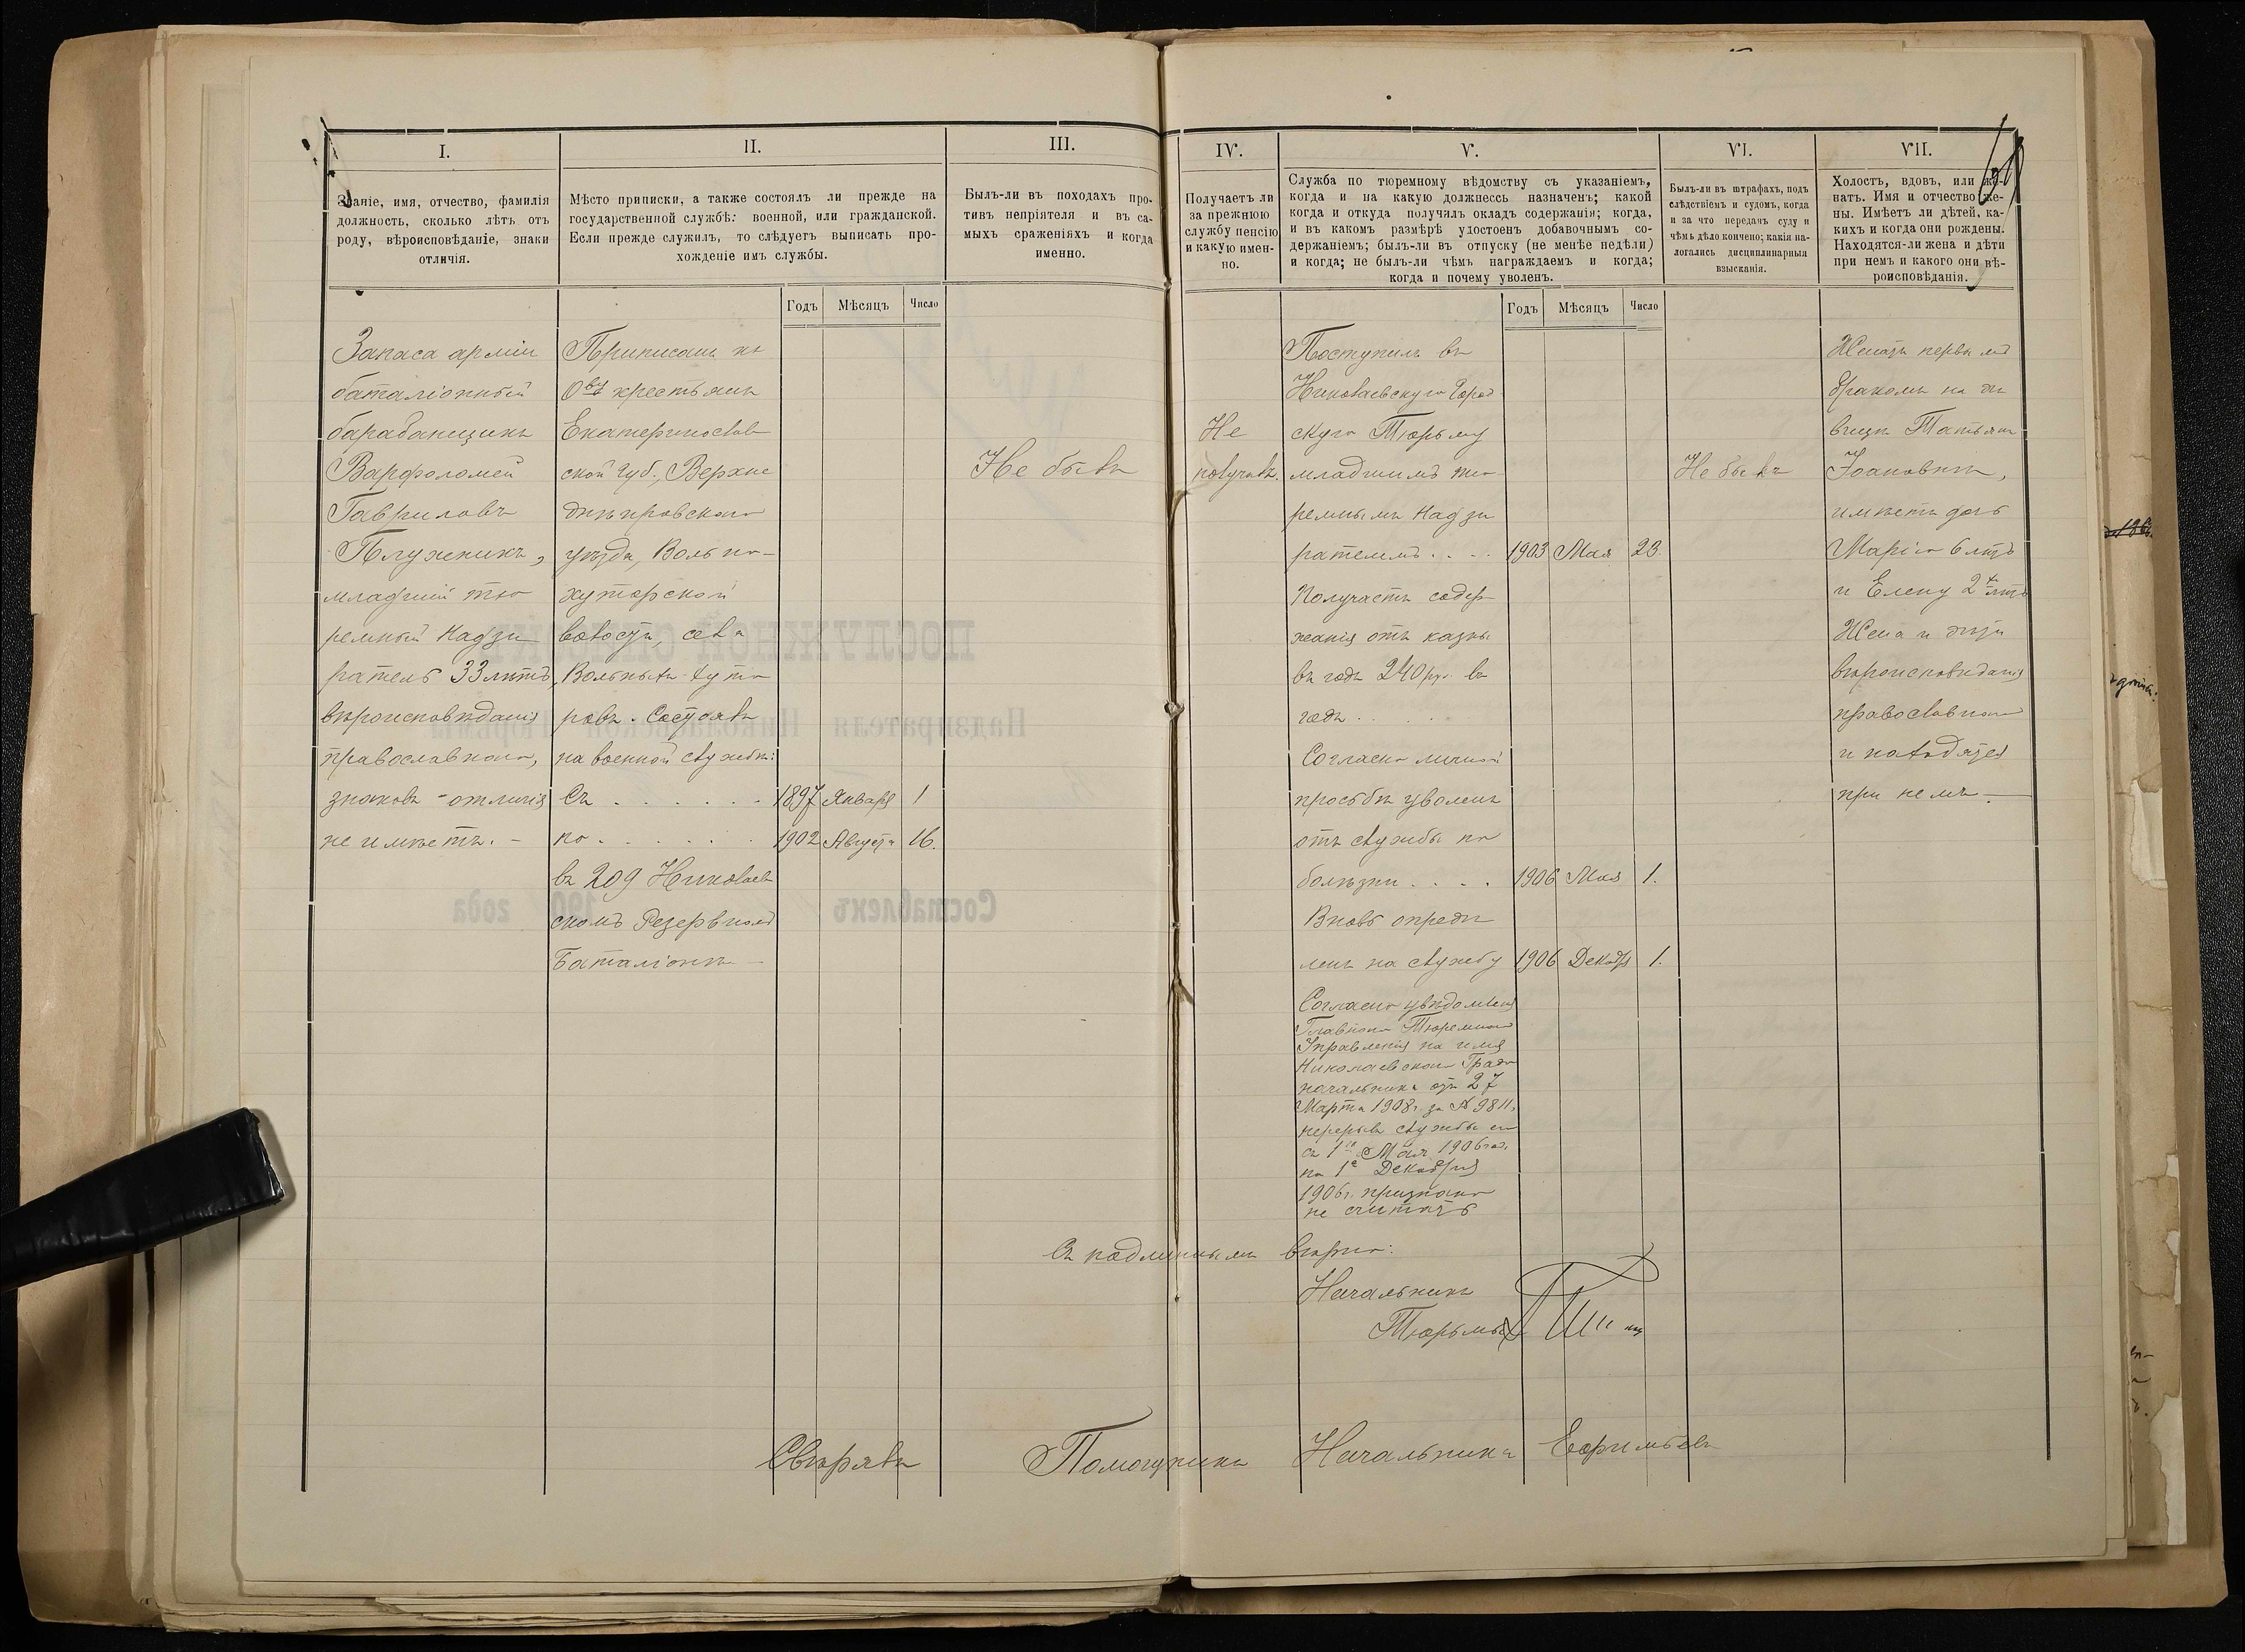 I.
Званіе, имя, отчество, фамилія
должность, сколько лѣтъ отъ
роду, вѣроисповѣданіе, знаки
отличія.
Запаса арміи
баталіонный
барабанщикъ
Варфоломей
Гавриловъ
Плуженикъ,
младшій тю
ремный Надзи
ратель 33 лѣтъ,
вѣроисповѣданія
православнаго,
знаковъ отличія
не имѣетъ. -
II.
Мѣсто приписки, а также состоялъ ли прежде на
государственной службѣ: военной, или гражданской.
Если прежде служилъ, то слѣдуетъ выписать про-
хожденіе имъ службы.
Годъ Мѣсяцъ Число
Приписанъ къ
О-ву крестьянъ
Екатеринослав
ской Губ., Верхне
днѣпровскаго
уѣзда, Вольно-
хуторской
волости, села
Вольныхъ Хуто
ровъ. Состоялъ
на военной службѣ:
Съ . . . . . . 1897 Января 1
по . . . . . . 1902 Августа 16.
въ 209 Николаев
скомъ Резервномъ
Баталіонѣ —
III.
Былъ-ли въ походахъ про-
тивъ непріятеля и въ са-
мыхъ сраженіяхъ и когда
именно.
Не былъ
IV.
Получаетъ ли
за прежнюю
службу пенсію
и какую имен-
но.
Не
получалъ.
V.
Служба по тюремному вѣдомству съ указаніемъ,
когда и на какую должнессь назначенъ; какой
когда и откуда получялъ окладъ содержанія; когда,
и въ какомъ размѣрѣ удостоенъ добавочнымъ со-
держаніемъ; былъ-ли въ отпуску (не менѣе недѣли)
и когда; не былъ-ли чѣмъ награждаемъ и когда;
когда и почему уволенъ.
Годъ Мѣсяцъ Число
Поступилъ въ
Николаевскую Город
скую Тюрьму
младшимъ тю-
ремнымъ Надзи
рателемъ . . . . 1903 Мая 23.
Получаетъ содер
жанія отъ казны
въ годъ 240 ру. въ
годъ . . . .
Согласно личной
просьбѣ уволенъ
отъ службы по
болѣзни . . . . 1906 Мая 1.
Вновь опредѣ
ленъ на службу 1906 Декабря 1.
Согласно увѣдомленія
Главнаго Тюремнаго
Управленія на имя
Николаевскаго Градо
начальника отъ 27
Марта 1908 г. за № 9811,
перерывъ службы
съ 1го Мая 1906 год.
по 1е Декабря
1906 г. признано
не считать
VI.
Былъ-ли въ штрафахъ, подъ
слѣдствіемъ и судомъ, когда
и за что переданъ суду и
чѣмъ дѣло кончено; какія на-
логались дисциплинарныя
взысканія.
Не былъ
VII.
Холостъ, вдовъ, или же-
натъ. Имя и отчество же-
ны. Имѣетъ ли дѣтей, ка-
кихъ и когда они рождены.
Находятся-ли жена и дѣти
при немъ и какого они вѣ-
роисповѣданія.
Женатъ первымъ
бракомъ на дѣ
вицѣ Татьянѣ
Іоановнѣ,
имѣетъ дочь
Марію 6 лѣтъ
и Елену 2 лѣтъ
Жена и дѣти
вѣроисповѣданія
православнаго
и находятся
при немъ. —
Съ подлиннымъ вѣрно:
Начальникъ
Тюрьмы
Свѣрялъ Помощникъ Начальника Ефимьевъ